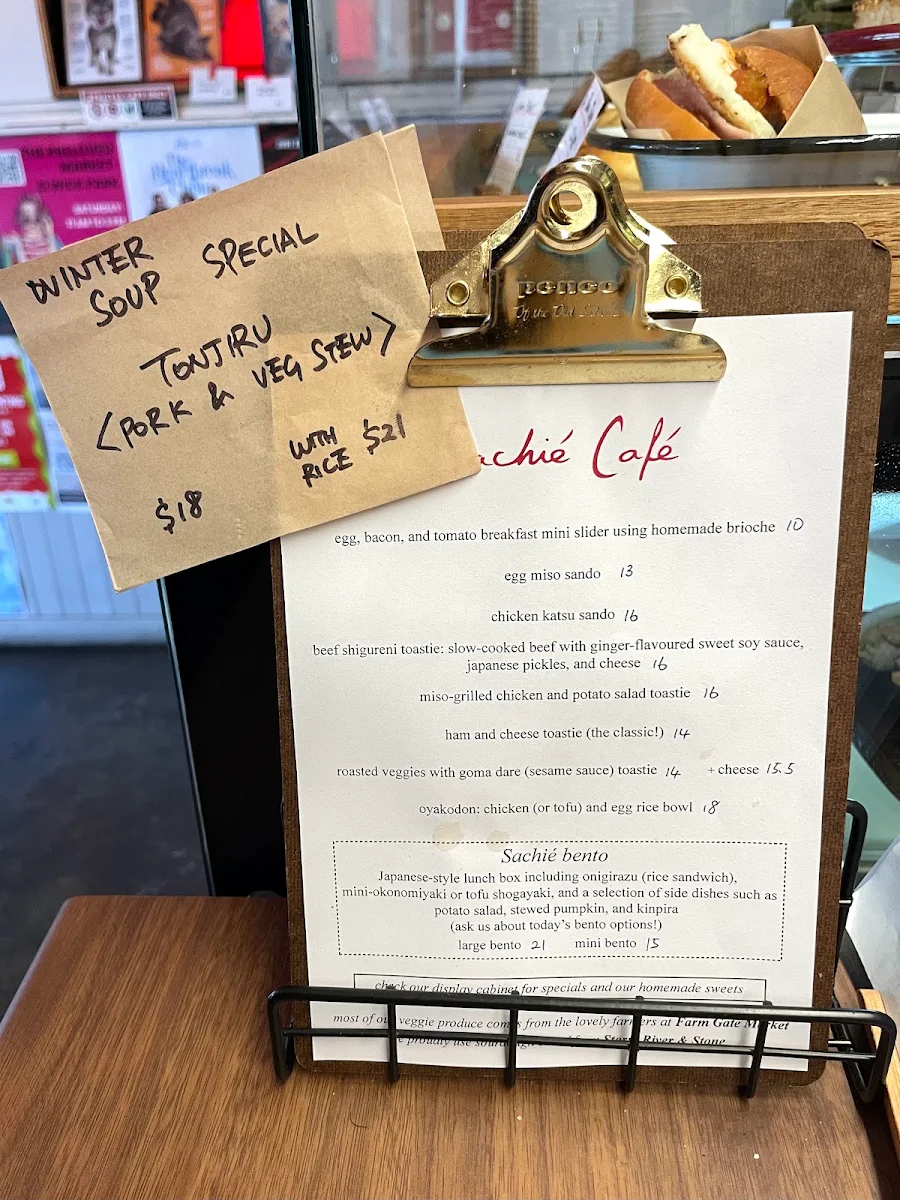 WINTER
SOUP SPECIAL
TONJIRU
<PORK & VEG STEW>
$18
WITH
RICE $21
penco
achié Café
egg, bacon, and tomato breakfast mini slider using homemade brioche 10
egg miso sando 13
chicken katsu sando 16
beef shigureni toastie: slow-cooked beef with ginger-flavoured sweet soy sauce,
japanese pickles, and cheese 16
miso-grilled chicken and potato salad toastie 16
ham and cheese toastie (the classic!) 14
roasted veggies with goma dare (sesame sauce) toastie 14 + cheese 15.5
oyakodon: chicken (or tofu) and egg rice bowl 18
Sachié bento
Japanese-style lunch box including onigirazu (rice sandwich),
mini-okonomiyaki or tofu shogayaki, and a selection of side dishes such as
potato salad, stewed pumpkin, and kinpira
(ask us about today's bento options!)
large bento 21 mini bento 15
check our display cabinet for specials and our homemade sweets
most of our veggie produce comes from the lovely farmers at Farm Gate Market
proudly use River & Stone